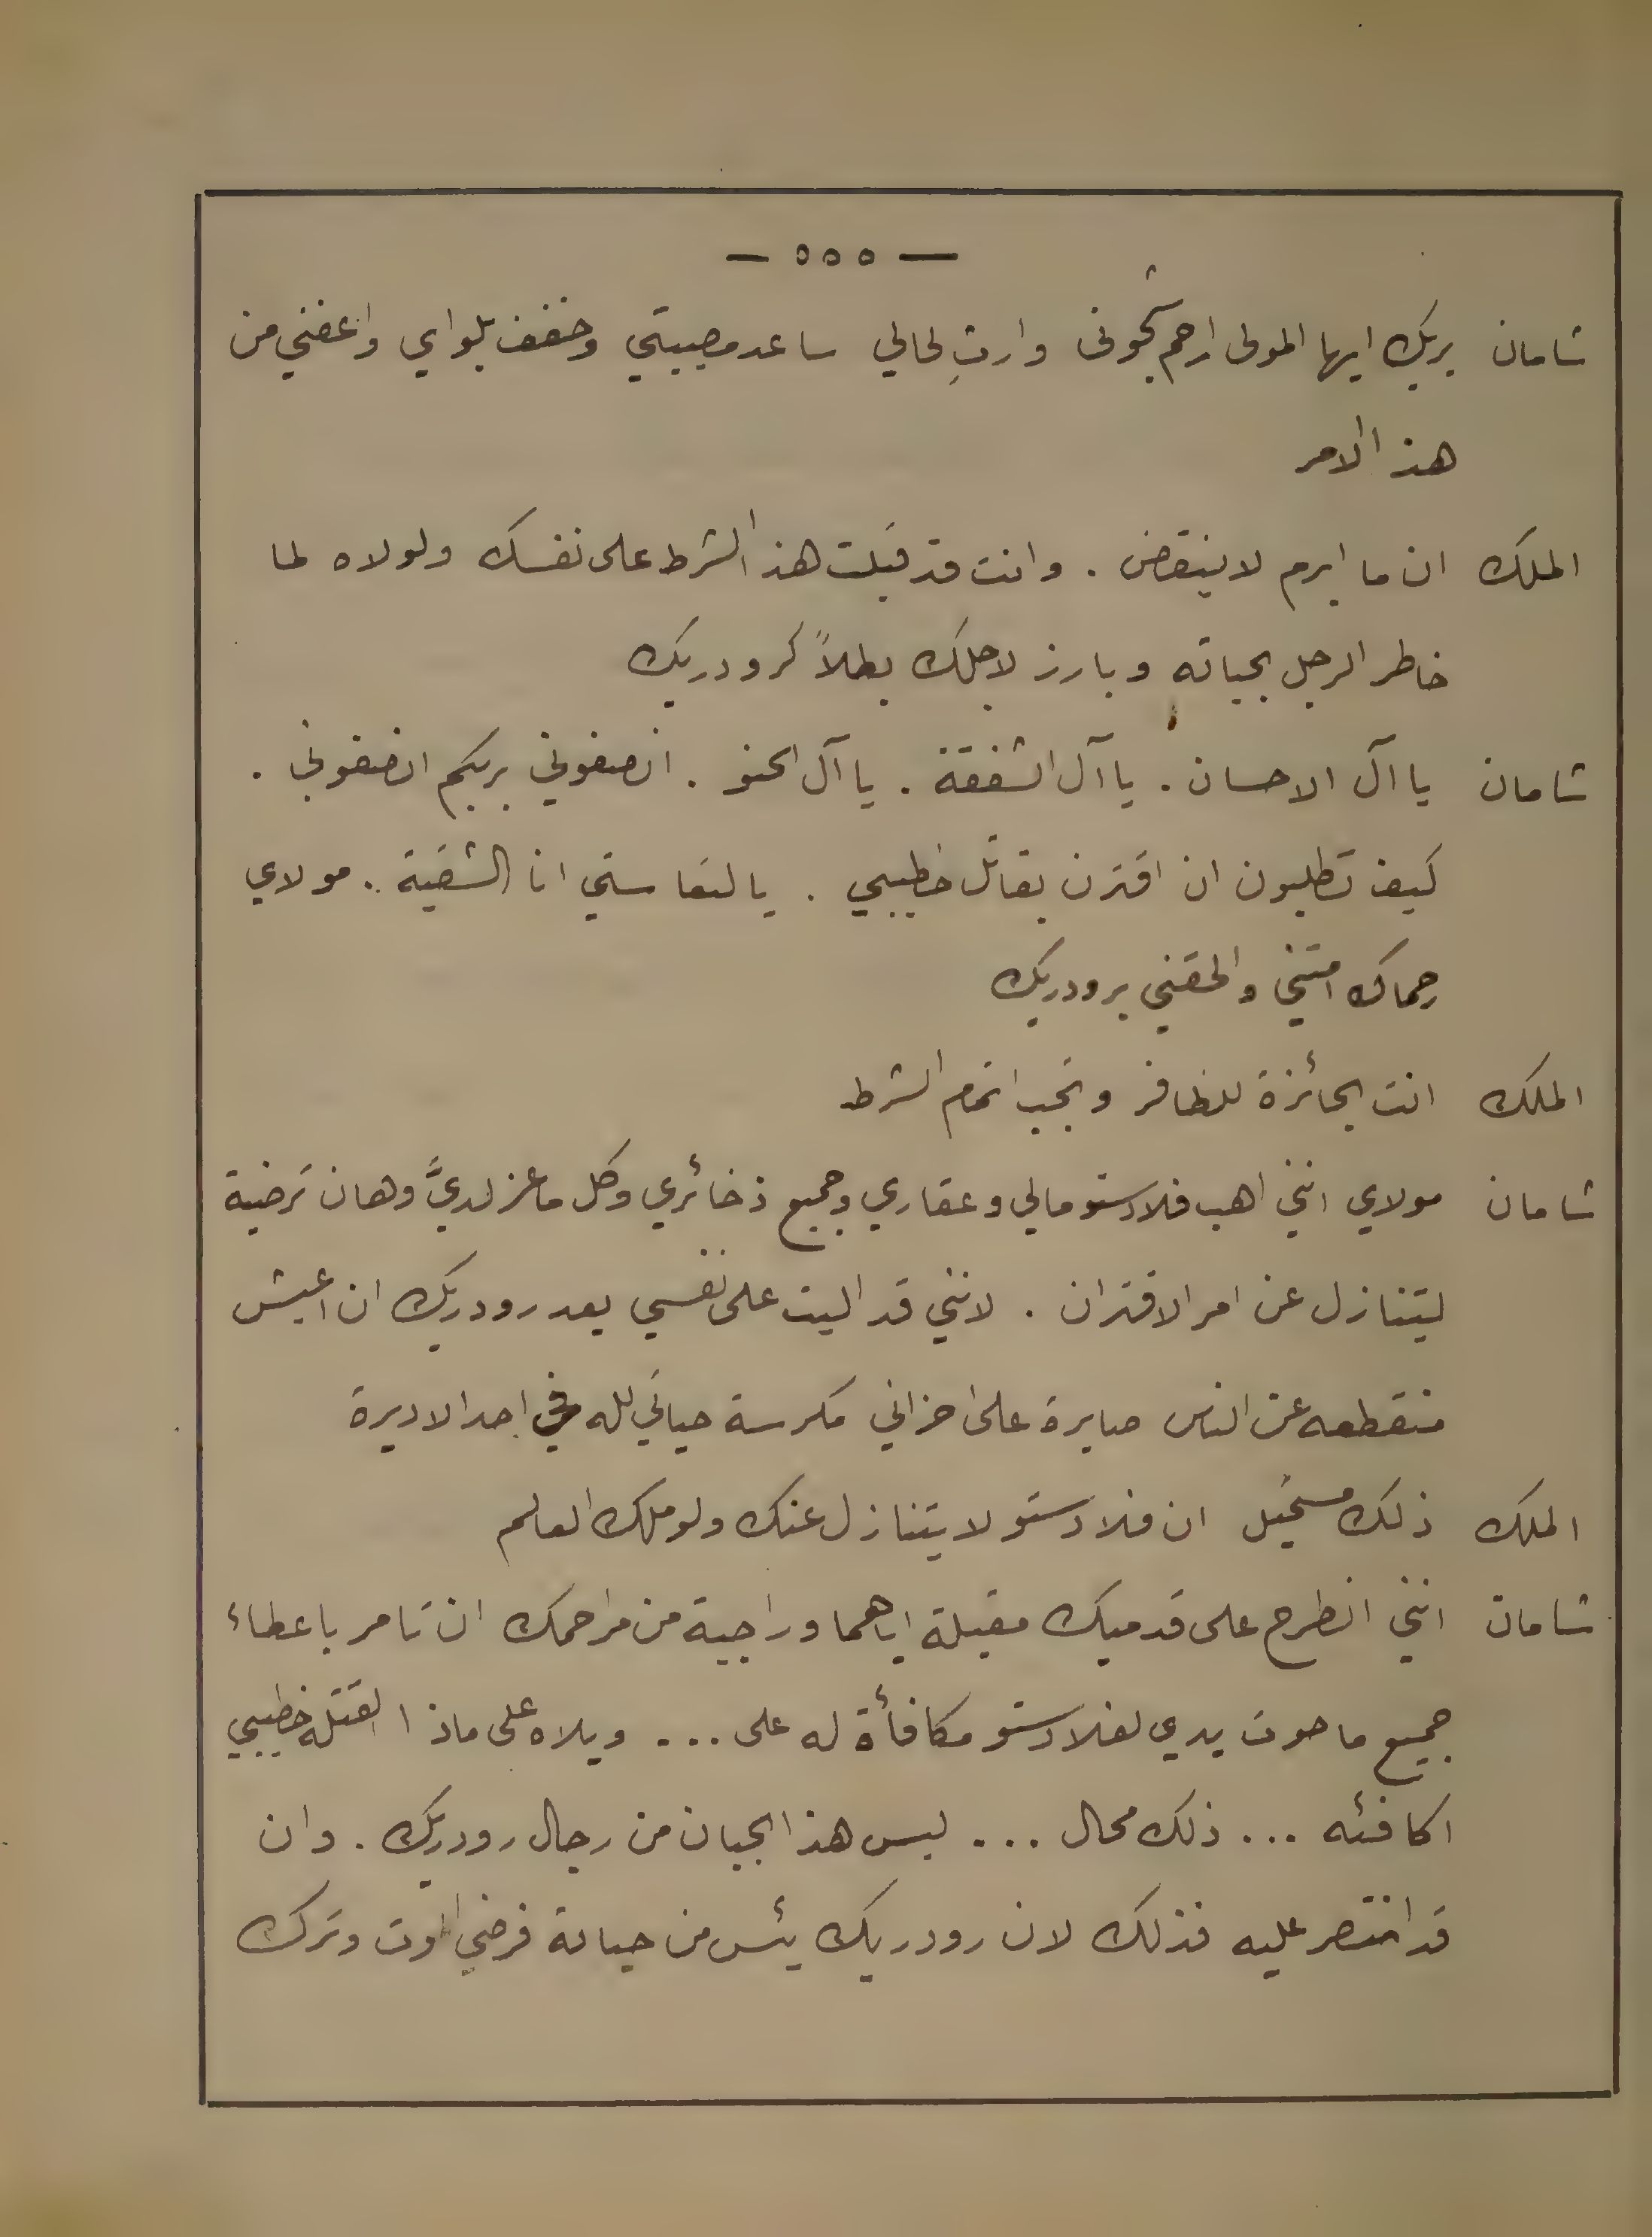 — ٥٥٥ —
شامان بربك ايها المولى ارحم شجوني وارثِ لحالي ساعد مصيبتي وخفف بلواي واعفني من
هذا الامر
الملك ان ما ابرم لا ينقض . وانت قد قبلت هذا الشرط على نفسك ولولاه لما
خاطر الرجل بحياته وبارز لاجلك بطلاً كرودريك
شامان يا آل الاحسان . يا آل الشفقة . يا آل الحنو . انصفوني بربكم انصفوني .
كيف تطلبون ان اقترن بقاتل خطيبي . يا لتعاستي انا الشقية . مولاي
رحماك امتني والحقني برودريك
الملك انت الجائزة للظافر ويجب اتمام الشرط
شامان مولاي انني اهب فلادستو مالي وعقاري وجميع ذخائري وكل ما عز لديَّ وهان ترضية
ليتنازل عن امر الاقتران . لانني قد اليت على نفسي بعد رودريك ان اعيش
منقطعه عن الناس صابرة على احزاني مكرسة حياتي لله في احد الاديرة
الملك ذلك مستحيل ان فلادستو لا يتنازل عنك ولو ملك العالم
شامان انني انطرح على قدميك مقبلة اياهما وراجية من مراحمك ان تامر باعطاء
جميع ما حوت يدي لفلادستو مكافأة له على ... ويلاه على ماذا القتله خطيبي
اكافئه ... ذلك محال ... ليس هذا الجبان من رجال رودريك . وان
قد انتصر عليه فذلك لان رودريك يئس من حياته فرضي الموت وترك